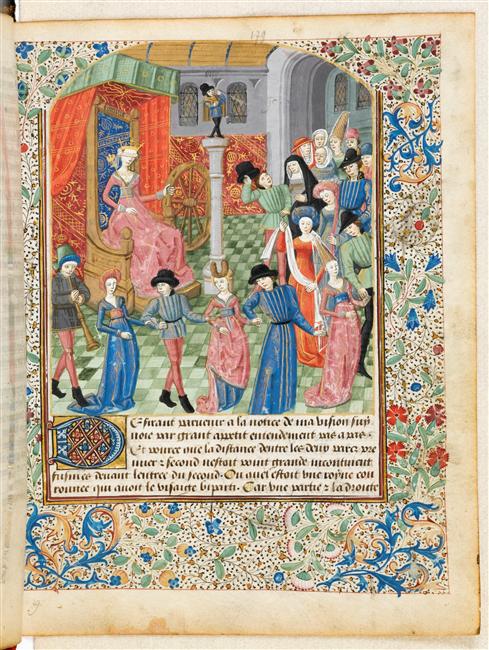 179
Esirant paruenir a la notice de ma vision sup
noie par grant appetit entendement pas a pas
Et pource que la distance dentre les deux parcz pre
mier ⁊ second nestoit point grande incontinent
fusmes deuant lentree du second. Ou quel estoit vne royne cou
ronnee qui auoit le visaige biparti. Car vne partie ⁊ la droitte